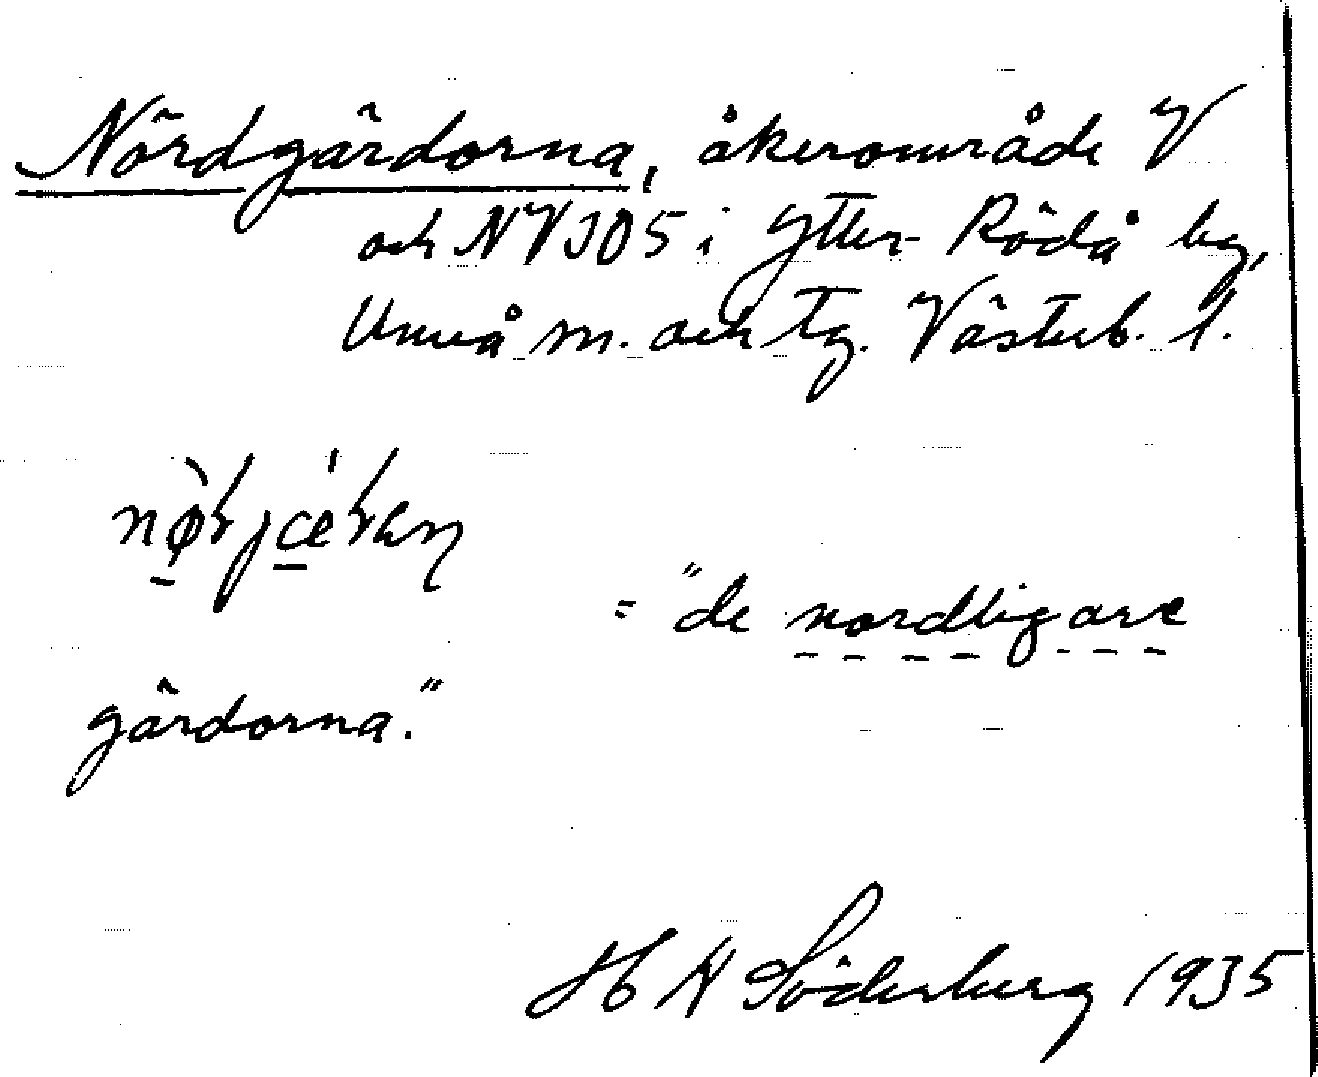 Nördgärdorna, åkerområde V
och NV305 i Ytter-Rödå by,
Umeå m. och tg. Västerb. l.
= "de nordligare
gärdorna."
H N Söderberg 1935